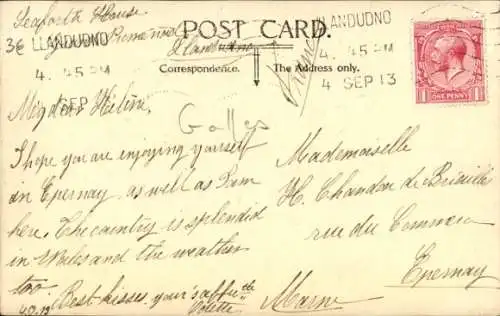 Seaforth House
Llandudno
POST CARD.
Correspondence. The Address only.
LLANDUDNO
4. 45 PM
SEP
LLANDUDNO
4. 45 PM
4 SEP 13
ONE PENNY
Galles
My dear Hélène,
I hope you are enjoying yourself
in Epernay as well as I am
here. The country is splendid
in Wales and the weather
too.
Best kisses, your's affte
Colette
Mademoiselle
H. Chandon de Briailles
rue du Commerce
Epernay
Marne